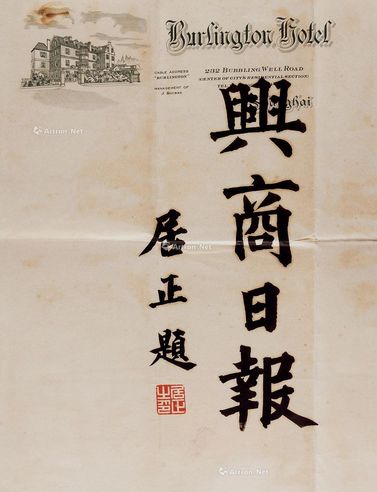 Burlington Hotel
CABLE ADDRESS
"BURLINGTON"
MANAGEMENT OF
232 BUBBLING WELL ROAD
(CENTER OF CITY'S RESIDENTIAL SECTION)
興商日報
居正題
居正之印
Artron.Net
Artron.Net
Artron.Net